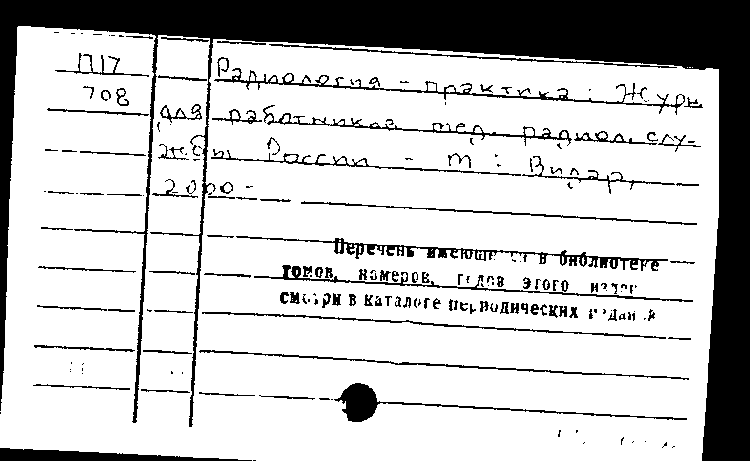 П17
708
Радиология - практика: Журн
для работников мед. радиол. слу-
жбы России - М: Видар,
2000-
Перечень имеющихся в библиотеке
томов, номеров, годов этого издан
смотри в каталоге периодических изданий